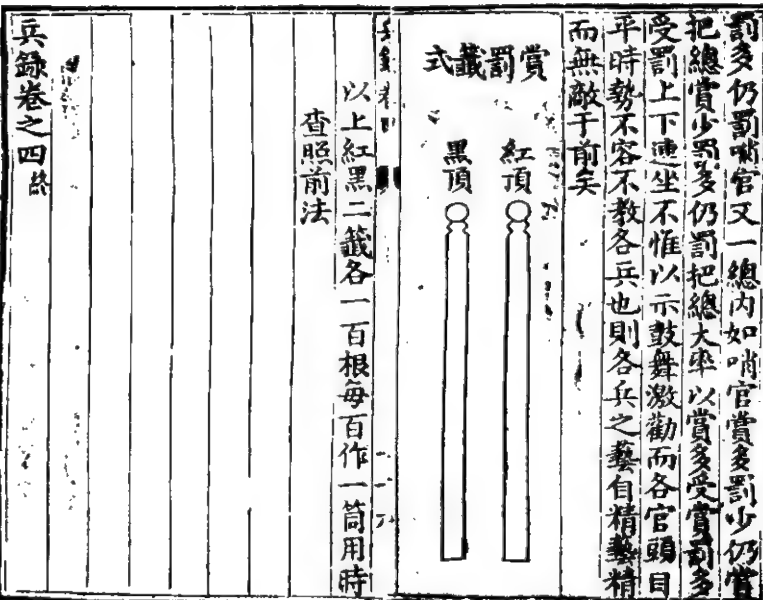 罰多仍罰哨官又一總内如哨官賞多罰少仍賞
把總賞少罰多仍罰把總大率以賞多受賞罰多
受罰上下連坐不惟以示鼓舞激勸而各官頭目
平時勢不容不教各兵也則各兵之藝自精藝精
而無敵于前矣
賞罰籤式
紅頂
黑頂
以上紅黑二籤各一百根每百作一筒用時
查照前法
兵錄卷之四終